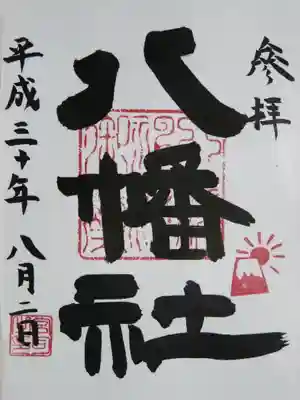 参拝
八幡社
平成三十年 八月二日